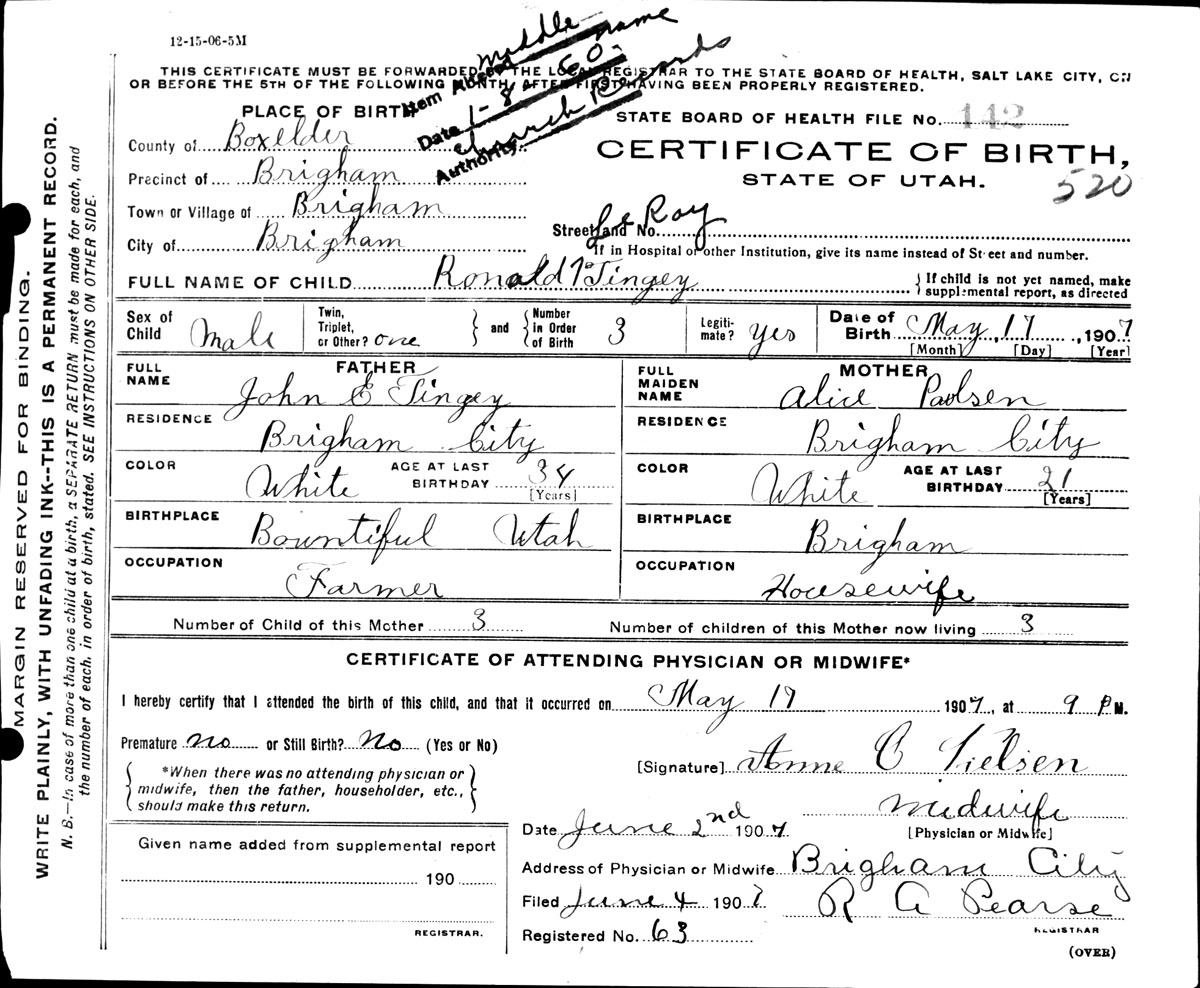 12-15-06-5M
middle name
Item Added
1-8 60.
Date
Church Records
Authority
THIS CERTIFICATE MUST BE FORWARDED BY THE LOCAL REGISTRAR TO THE STATE BOARD OF HEALTH, SALT LAKE CITY, ON
OR BEFORE THE 5TH OF THE FOLLOWING MONTH, AFTER FIRST HAVING BEEN PROPERLY REGISTERED.
PLACE OF BIRTH
STATE BOARD OF HEALTH FILE No. 142
County of Boxelder
CERTIFICATE OF BIRTH,
STATE OF UTAH.
520
Precinct of Brigham
Town or Village of Brigham
LeRoy
Street and No.
City of Brigham
If in Hospital or other Institution, give its name instead of Street and number.
FULL NAME OF CHILD Ronald Tingey
If child is not yet named, make
supplemental report, as directed
Sex of Child Male
Twin, Triplet, or Other? one
and
Number in Order of Birth 3
Legiti-mate? yes
Date of Birth May, 17, 1907
[Month] [Day] [Year]
FATHER
MOTHER
FULL NAME John E Tingey
FULL MAIDEN NAME Alice Paolsen
RESIDENCE Brigham City
RESIDENCE Brigham City
COLOR White AGE AT LAST BIRTHDAY 34 [Years]
COLOR White AGE AT LAST BIRTHDAY 21 [Years]
BIRTHPLACE Bountiful Utah
BIRTHPLACE Brigham
OCCUPATION Farmer
OCCUPATION Housewife
Number of Child of this Mother 3
Number of children of this Mother now living 3
CERTIFICATE OF ATTENDING PHYSICIAN OR MIDWIFE*
I hereby certify that I attended the birth of this child, and that it occurred on May 17 1907, at 9 P.M.
Premature no or Still Birth? No (Yes or No)
[Signature] Anne C Nielsen
*When there was no attending physician or
midwife, then the father, householder, etc.,
should make this return.
midwife
[Physician or Midwife]
Date June 2nd 1907
Given name added from supplemental report
190
REGISTRAR.
Address of Physician or Midwife Brigham City
Filed June 4 1907 R A Pearse
REGISTRAR
Registered No. 63
(OVER)
MARGIN RESERVED FOR BINDING.
WRITE PLAINLY, WITH UNFADING INK--THIS IS A PERMANENT RECORD.
N. B.—In case of more than one child at a birth, a SEPARATE RETURN must be made for each, and
the number of each, in order of birth, stated. SEE INSTRUCTIONS ON OTHER SIDE.